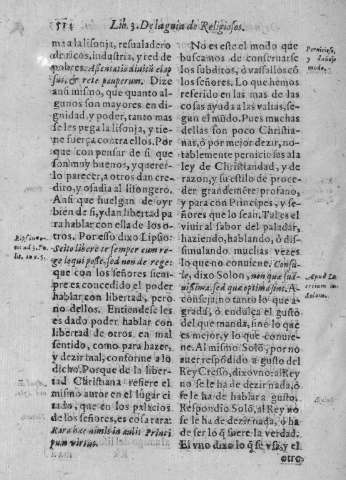 514 Lib. 3. De la guia de Religiosos.
ma a la lisonja, resualadero
de ricos, industria, y red de
nobles.
sus, & rete pauperum. Dize
assi mismo, que quanto al-
gunos son mayores en di-
gnidad, y poder, tanto mas
se les pega la lisonja, y tie-
ne fuerça contra ellos. Por
que con pensar de si que
son muy buenos, y querer-
lo parecer, a otros dan cre-
dito, y osadia al lisongero.
Assi que huelgan de oyr
bien de si, y dan libertad pa
ra hablar con ella de los o-
tros. Por esso dixo Lipsio:
Scito libere te semper cum rege
loqui posse, sed non de rege:
que con los señores siem-
pre es concedido el poder
hablar con libertad, pero
no dellos. Entiendese les
es dado poder hablar con
libertad de otros en mal
sentido, como para hazer,
y dezir mal, conforme a lo
dicho. Porque de la liber-
tad Christiana refiere el
mismo autor en el lugar ci
tado, que en los palacios
de los señores, es cosa rara:
Rara hæc nimis in aulis Princi
pum virtus.
No es este el modo que
buscamos de conseruarse
los subditos, ò vassallos cō
los señores. Lo que hemos
referido en las mas de las
cosas ayuda a las valtas, se-
gun el mūdo. Pues muchas
dellas son poco Christia-
nas, ò por mejor dezir, no-
tablemente perniciosas a la
ley de Christiandad, y de
razon, y su estilo de proce-
der grandemēte profano,
y para con Principes, y se-
ñores que lo sean. Tal es el
viuir al sabor del paladar,
haziendo, hablando, ò dis-
simulando muchas vezes
lo que no conuiene. Consu-
le, dixo Solon, non quæ sua-
uissima, sed quæ optima sint. A-
conseja, no tanto lo que a-
grada, ò endulça el gusto
del que manda, sino lo que
es mejor, y lo que conuie-
ne. A l mismo Solō, por no
auer respōdido a gusto del
Rey Cresso, dixo vno: al Rey
no se le ha de dezir nada, ò
se le ha de hablar a gusto.
Respondio Solō, al Rey no
se le ha de dezir nada, ò ha
de ser lo q̄ fuere la verdad.
El vno dixo lo q̄ se vsa, y el
otro
Pernicioso,
y dañoso
modo.
Apud La-